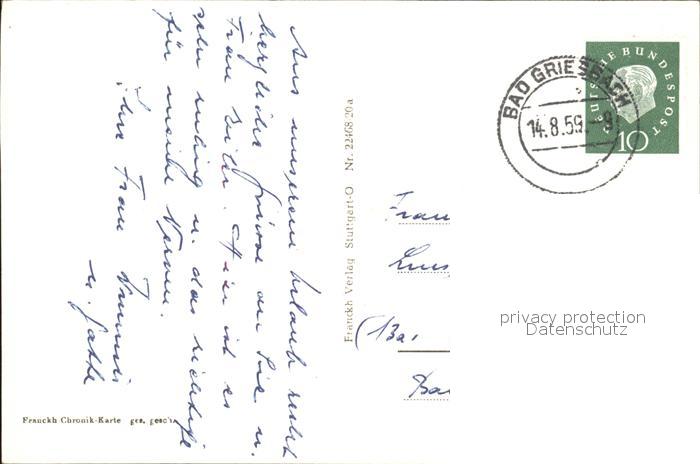 Aus unserem Urlaub recht
herzliche Grüsse an Sie u.
Frau Hier ist es
sehr ruhig u. das richtige
für meine Nerven.
Ihre Frau
u. Gatte
Franckh Chronik-Karte ges. gesch.
Franckh Verlag Stuttgart-O Nr. 22468/20a
BAD GRIESBACH
14.8.59.-8
DEUTSCHE BUNDESPOST
10
Frau
(Ba
Ba
privacy protection
Datenschutz